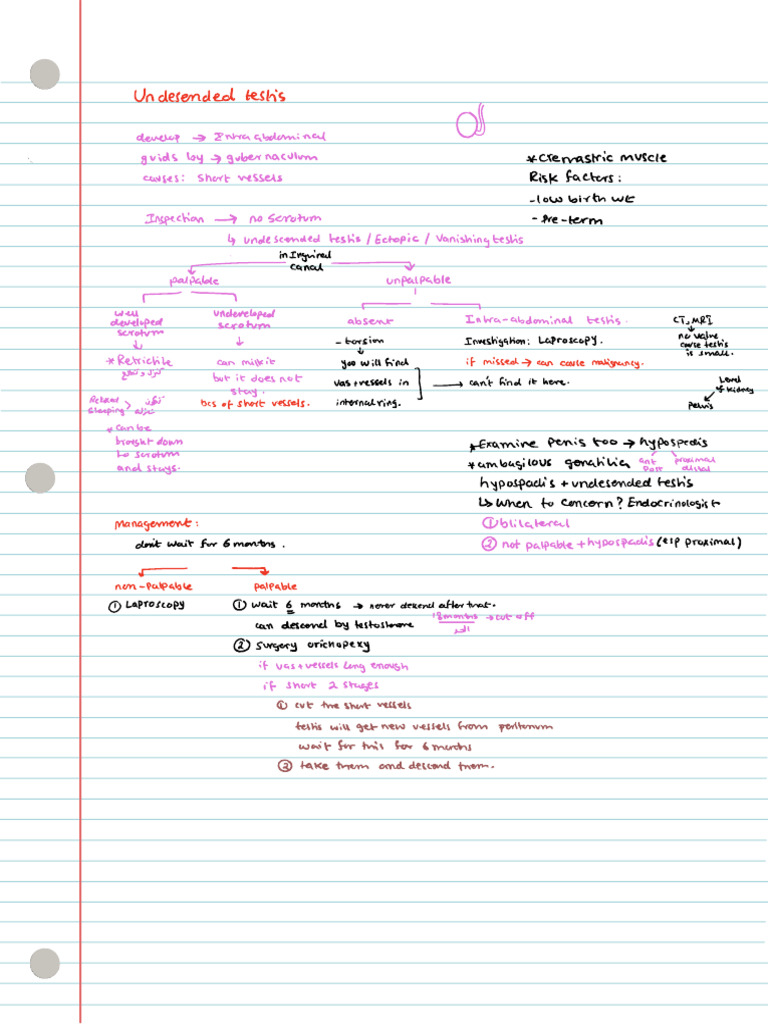 Undesended testis
develop → Intra abdominal
guids by → gubernaculum
causes: short vessels
*Cremastric muscle
Risk factors:
-low birth wt
-Pre-term
Inspection → no scrotum
↳ undescended testis / Ectopic / Vanishing testis
in Inguinal canal
palpable
unpalpable
well developed scrotum
↓
*Retrictile
Relaxed
sleeping >
*can be
broght down
to scrotum
and stays.
undeveloped scrotum
↓
can milk it
but it does not
stay.
bcs of short vessels.
absent
-torsion
you will find
vas+vessels in
internal ring.
→ can't find it here.
Intra-abdominal testis.
Investigation: Laproscopy.
if missed → can cause malignancy.
CT, MRI
↓
no value
cause testis
is small.
Level of kidney
↙
Pelvis
*Examine penis too → hypospedis
*ambagilous genatilia
ant
post
proximal
distal
hypospadis + undesended testis
↳ When to concern? Endocrinologist
① bilateral
② not palpable + hypospadis (esp proximal)
Management:
don't wait for 6 months.
non-palpable
① Laproscopy
palpable
① wait 6 months → never descend after that.
can descend by testostrone
18 months → cut off
② surgery orichopexy
if vas+vessels long enough
if short 2 stages
① cut the short vessels
testis will get new vessels from peritonum
wait for this for 6 months
② take them and descend them.